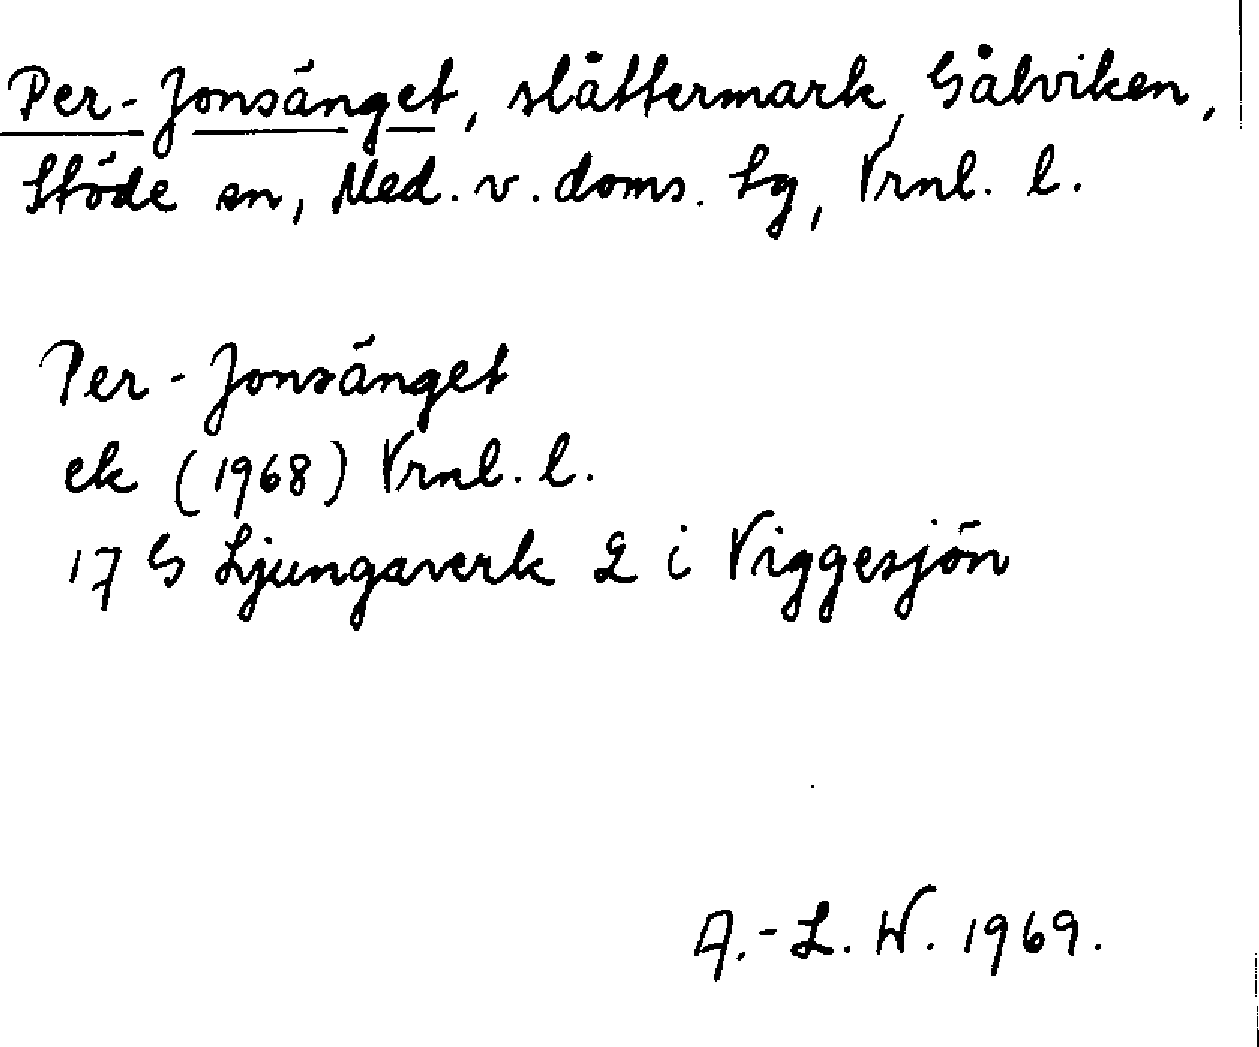 Per-Jonsänget, slåttermark, Gålviken,
Stöde sn, Med. v. doms. tg, Vrnl. l.
Per-Jonsänget
ek (1968) Vrnl. l.
17 G Ljungaverk 2 i Viggesjön
A.-L. W. 1969.